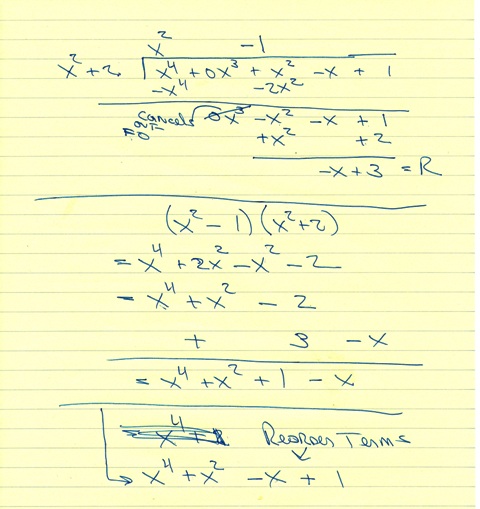 x² -1
x²+2 √x⁴ + 0x³ + x² - x + 1
-x⁴ -2x²
Cancels 0x³ -x² - x + 1
OUT
=0
+x² +2
-x+3 = R
(x²-1)(x²+2)
= x⁴ + 2x² - x² - 2
= x⁴ + x² - 2
+ 3 - x
= x⁴ + x² + 1 - x
Reorder Terms
x⁴ + x² - x + 1